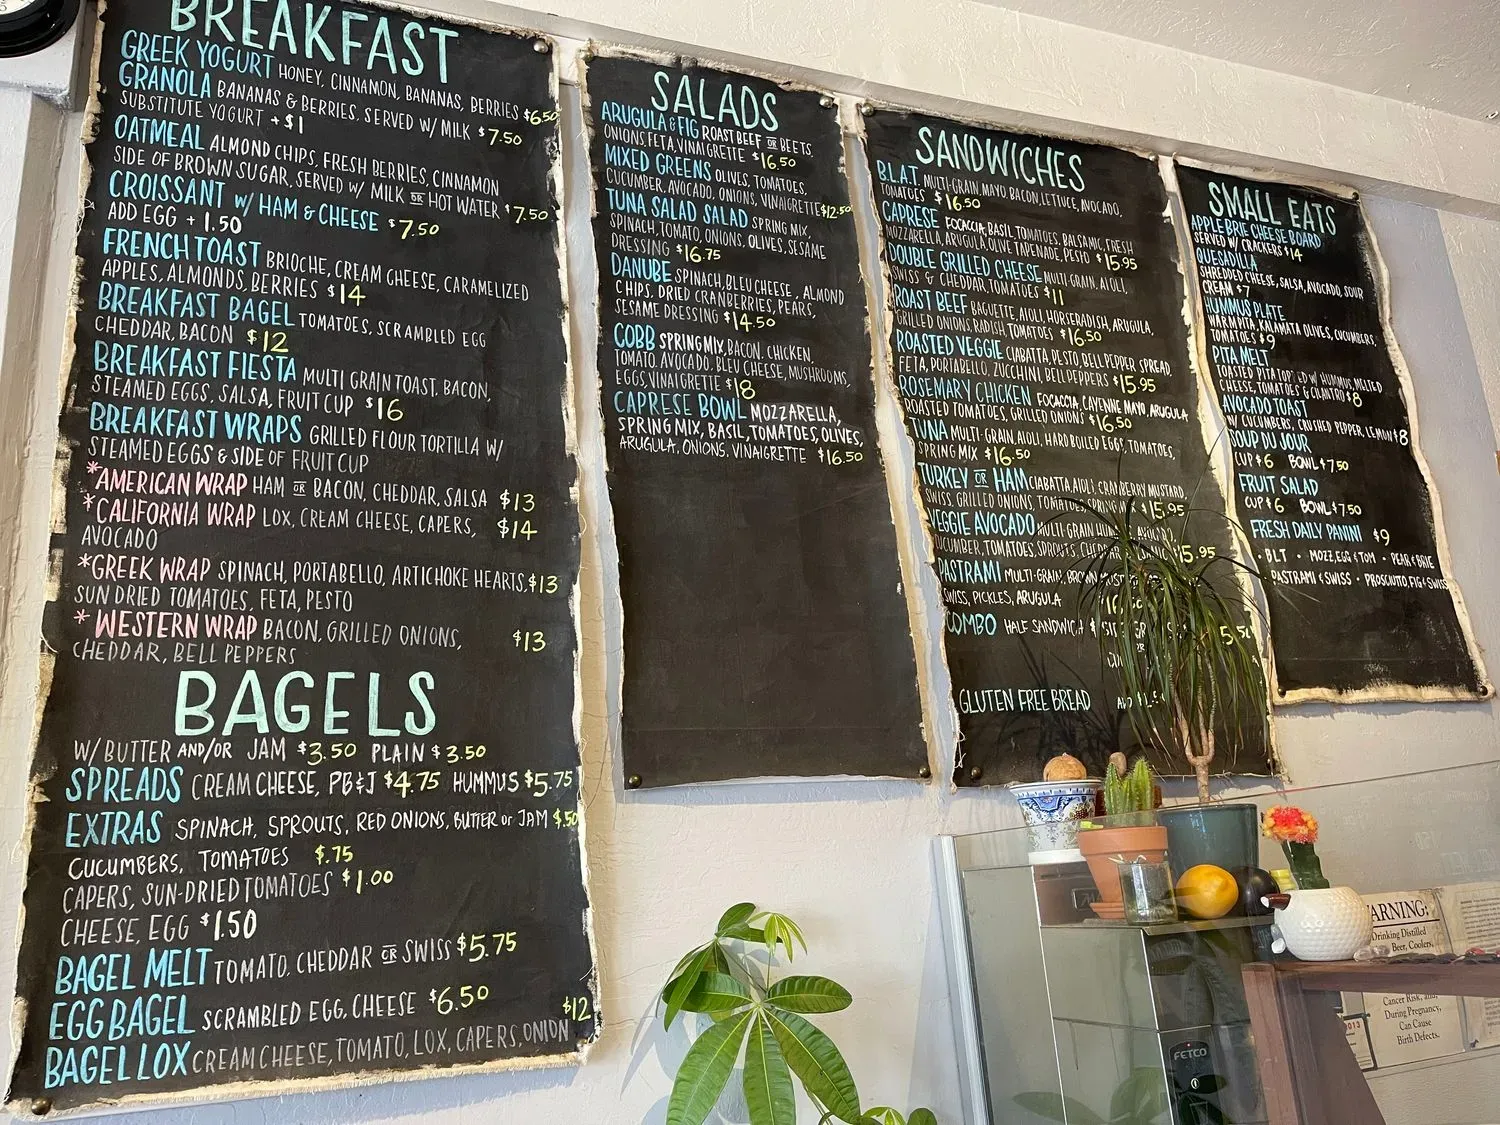 BREAKFAST
GREEK YOGURT HONEY, CINNAMON, BANANAS, BERRIES $6.50
GRANOLA BANANAS & BERRIES, SERVED W/ MILK $7.50
SUBSTITUTE YOGURT + $1
OATMEAL ALMOND CHIPS, FRESH BERRIES, CINNAMON
SIDE OF BROWN SUGAR, SERVED W/ MILK OR HOT WATER $7.50
CROISSANT W/ HAM & CHEESE $7.50
ADD EGG + 1.50
FRENCH TOAST BRIOCHE, CREAM CHEESE, CARAMELIZED
APPLES, ALMONDS, BERRIES $14
BREAKFAST BAGEL TOMATOES, SCRAMBLED EGG
CHEDDAR, BACON $12
BREAKFAST FIESTA MULTI GRAIN TOAST, BACON,
STEAMED EGGS, SALSA, FRUIT CUP $16
BREAKFAST WRAPS GRILLED FLOUR TORTILLA W/
STEAMED EGGS & SIDE OF FRUIT CUP
*AMERICAN WRAP HAM OR BACON, CHEDDAR, SALSA $13
*CALIFORNIA WRAP LOX, CREAM CHEESE, CAPERS, $14
AVOCADO
*GREEK WRAP SPINACH, PORTABELLO, ARTICHOKE HEARTS, $13
SUN DRIED TOMATOES, FETA, PESTO
*WESTERN WRAP BACON, GRILLED ONIONS, $13
CHEDDAR, BELL PEPPERS
BAGELS
W/ BUTTER AND/OR JAM $3.50 PLAIN $3.50
SPREADS CREAM CHEESE, PB&J $4.75 HUMMUS $5.75
EXTRAS SPINACH, SPROUTS, RED ONIONS, BUTTER or JAM $.50
CUCUMBERS, TOMATOES $.75
CAPERS, SUN-DRIED TOMATOES $1.00
CHEESE, EGG $1.50
BAGEL MELT TOMATO, CHEDDAR OR SWISS $5.75
EGG BAGEL SCRAMBLED EGG, CHEESE $6.50
$12
BAGEL LOX CREAM CHEESE, TOMATO, LOX, CAPERS, ONION
SALADS
ARUGULA & FIG ROAST BEEF OR BEETS,
ONIONS, FETA, VINAIGRETTE $16.50
MIXED GREENS OLIVES, TOMATOES,
CUCUMBER, AVOCADO, ONIONS, VINAIGRETTE $12.50
TUNA SALAD SALAD SPRING MIX,
SPINACH, TOMATO, ONIONS, OLIVES, SESAME
DRESSING $16.75
DANUBE SPINACH, BLEU CHEESE, ALMOND
CHIPS, DRIED CRANBERRIES, PEARS,
SESAME DRESSING $14.50
COBB SPRING MIX, BACON, CHICKEN,
TOMATO, AVOCADO, BLEU CHEESE, MUSHROOMS,
EGGS, VINAIGRETTE $18
CAPRESE BOWL MOZZARELLA,
SPRING MIX, BASIL, TOMATOES, OLIVES,
ARUGULA, ONIONS, VINAIGRETTE $16.50
SANDWICHES
B.L.A.T. MULTI-GRAIN, MAYO, BACON, LETTUCE, AVOCADO,
TOMATOES $16.50
CAPRESE FOCACCIA, BASIL, TOMATOES, BALSAMIC, FRESH
MOZZARELLA, ARUGULA, OLIVE TAPENADE, PESTO $15.95
DOUBLE GRILLED CHEESE MULTI-GRAIN, AIOLI,
SWISS & CHEDDAR, TOMATOES $11
ROAST BEEF BAGUETTE, AIOLI, HORSERADISH, ARUGULA,
GRILLED ONIONS, RADISH, TOMATOES $16.50
ROASTED VEGGIE CIABATTA, PESTO, BELL PEPPER SPREAD,
FETA, PORTABELLO, ZUCCHINI, BELL PEPPERS $15.95
ROSEMARY CHICKEN FOCACCIA, CAYENNE MAYO, ARUGULA
ROASTED TOMATOES, GRILLED ONIONS $16.50
TUNA MULTI-GRAIN, AIOLI, HARD BOILED EGGS, TOMATOES,
SPRING MIX $16.50
TURKEY OR HAM CIABATTA, AIOLI, CRANBERRY MUSTARD,
SWISS, GRILLED ONIONS, TOMATOES, SPRING MIX $15.95
VEGGIE AVOCADO MULTI-GRAIN HUMMUS, AVOCADO,
CUCUMBER, TOMATOES, SPROUTS, CHEDDAR $15.95
PASTRAMI MULTI-GRAIN, BROWN MUSTARD
SWISS, PICKLES, ARUGULA
COMBO HALF SANDWICH
GLUTEN FREE BREAD
SMALL EATS
APPLE BRIE CHEESE BOARD
SERVED W/ CRACKERS $14
QUESADILLA
SHREDDED CHEESE, SALSA, AVOCADO, SOUR
CREAM $7
HUMMUS PLATE
WARM PITA, KALAMATA OLIVES, CUCUMBERS,
TOMATOES $9
PITA MELT
TOASTED PITA TOPPED W/ HUMMUS, MELTED
CHEESE, TOMATOES & CILANTRO $8
AVOCADO TOAST
W/ CUCUMBERS, CRUSHED PEPPER, LEMON $8
SOUP DU JOUR
CUP $6 BOWL $7.50
FRUIT SALAD
CUP $6 BOWL $7.50
FRESH DAILY PANINI $9
• BLT • MOZZ, EGG & TOM • PEAR & BRIE
• PASTRAMI & SWISS • PROSCIUTO, FIG & SWISS
WARNING:
Drinking Distilled
Beer, Coolers,
Cancer Risk, and,
During Pregnancy,
Can Cause
Birth Defects.
2013
FETCO